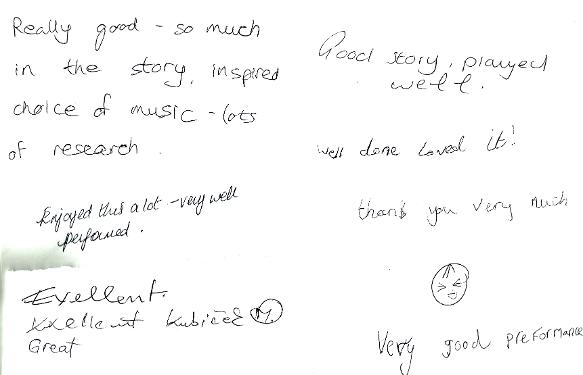 Really good - so much
in the story, inspired
choice of music - lots
of research.
Enjoyed this a lot - very well
performed.
Exellent.
Xxellent Kubíček M
Great
Good story, played
well.
well done loved it!
thank you very much
Very good preformance